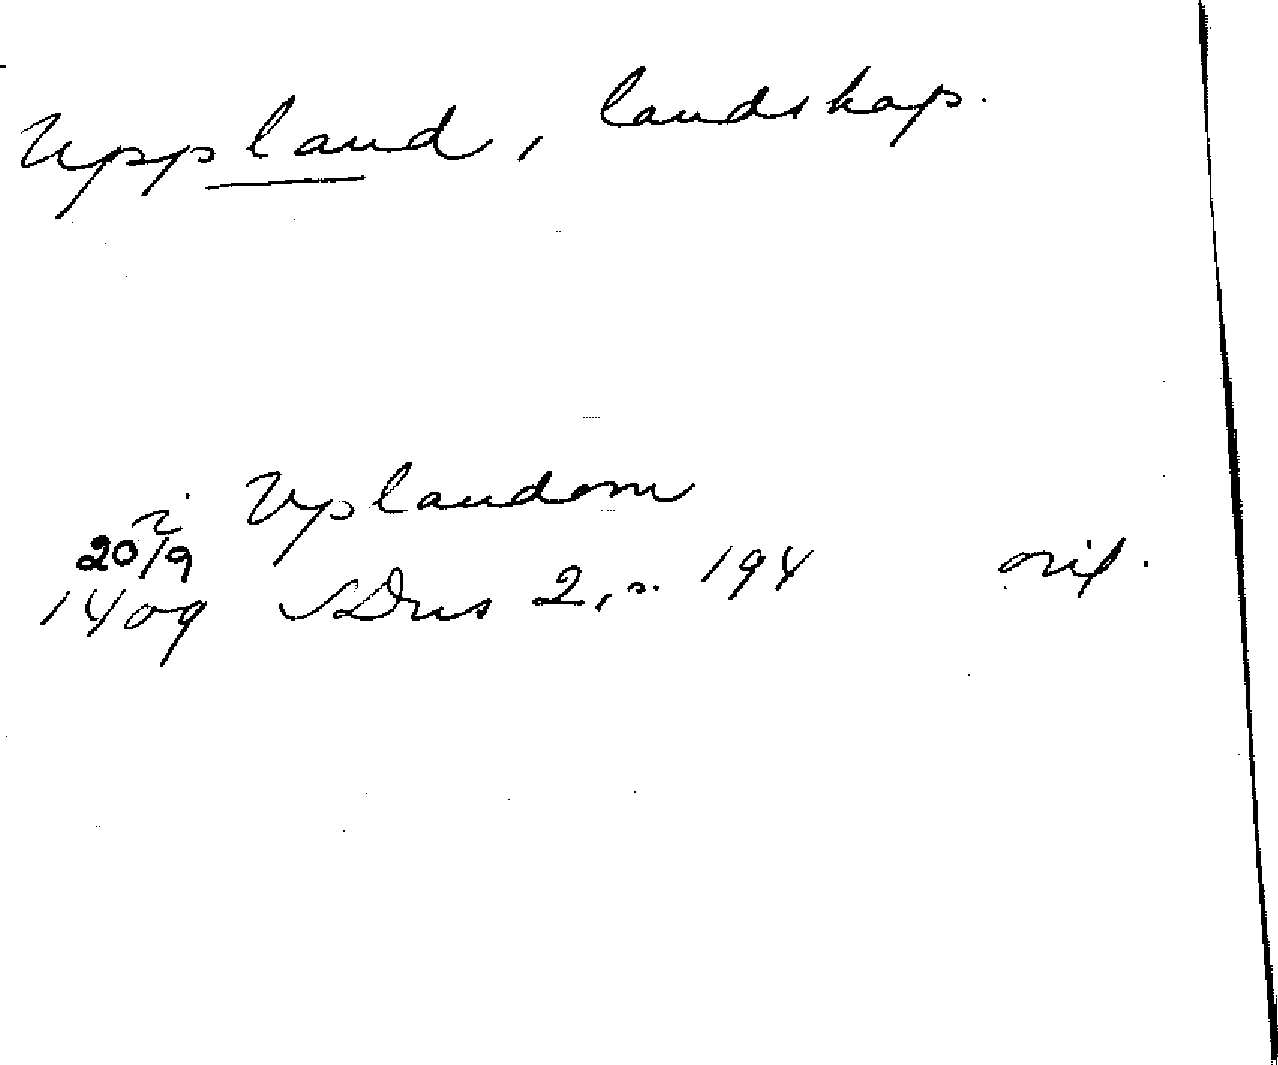 Uppland, landskap.
i Vplandom
20/9
1409 SDns 2, s. 194 orig.